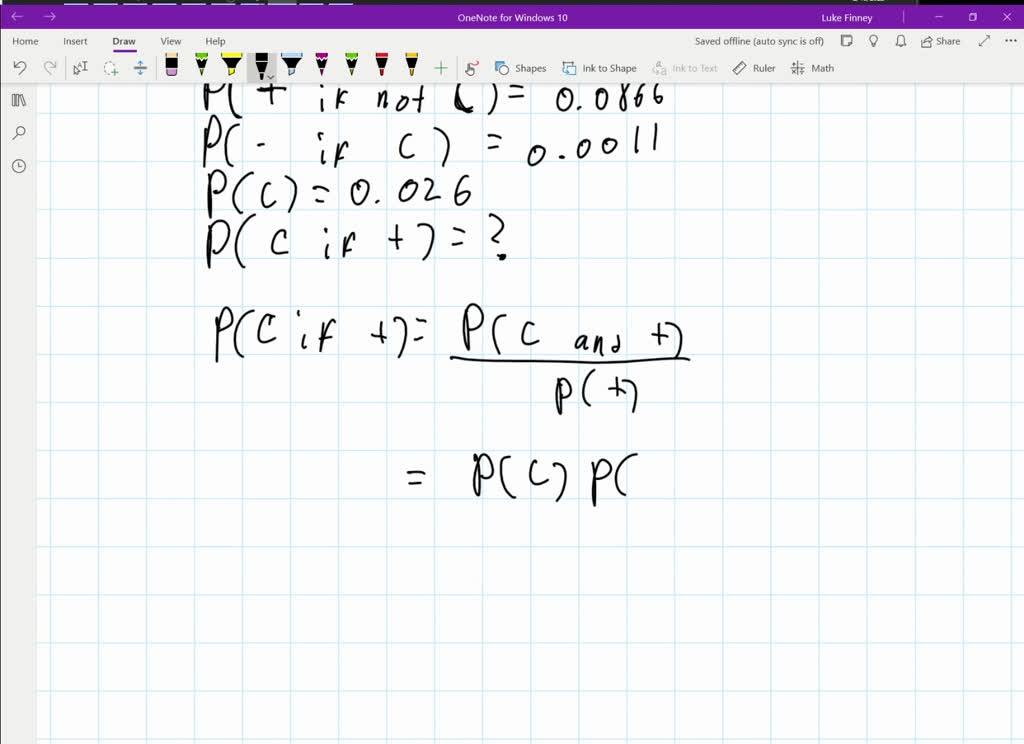 OneNote for Windows 10
Luke Finney
Home Insert Draw View Help
Saved offline (auto sync is off)
Share
Shapes Ink to Shape Ink to Text Ruler Math
P(+ if not C) = 0.0866
P(- if C) = 0.0011
P(C) = 0.026
P(C if +) = ?
P(C if +) = P(C and +)
P(+)
= P(C) P(